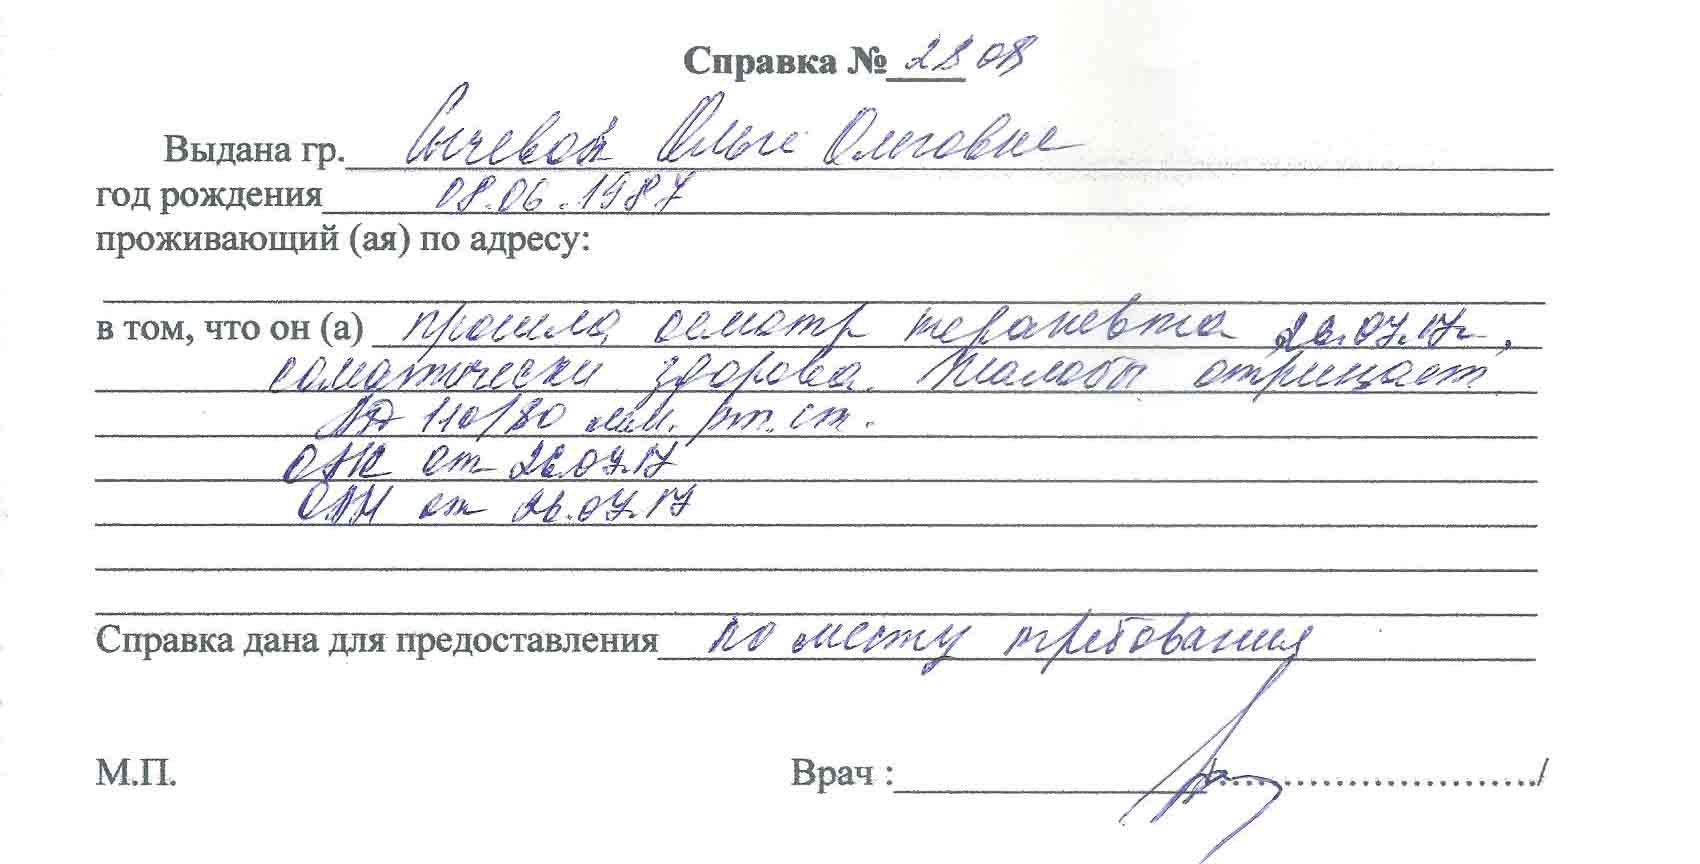 Справка № 2808
Выдана гр. Сычевой Ольге Олеговне
год рождения 08.06.1987
проживающий (ая) по адресу:
в том, что он (а) прошла осмотр терапевта 26.07.17г,
соматически здорова. Жалобы отрицает
АД 110/80 мм. рт. ст.
ОАК от 26.07.17
ОАМ от 26.07.17
Справка дана для предоставления по месту требования
М.П. Врач : /